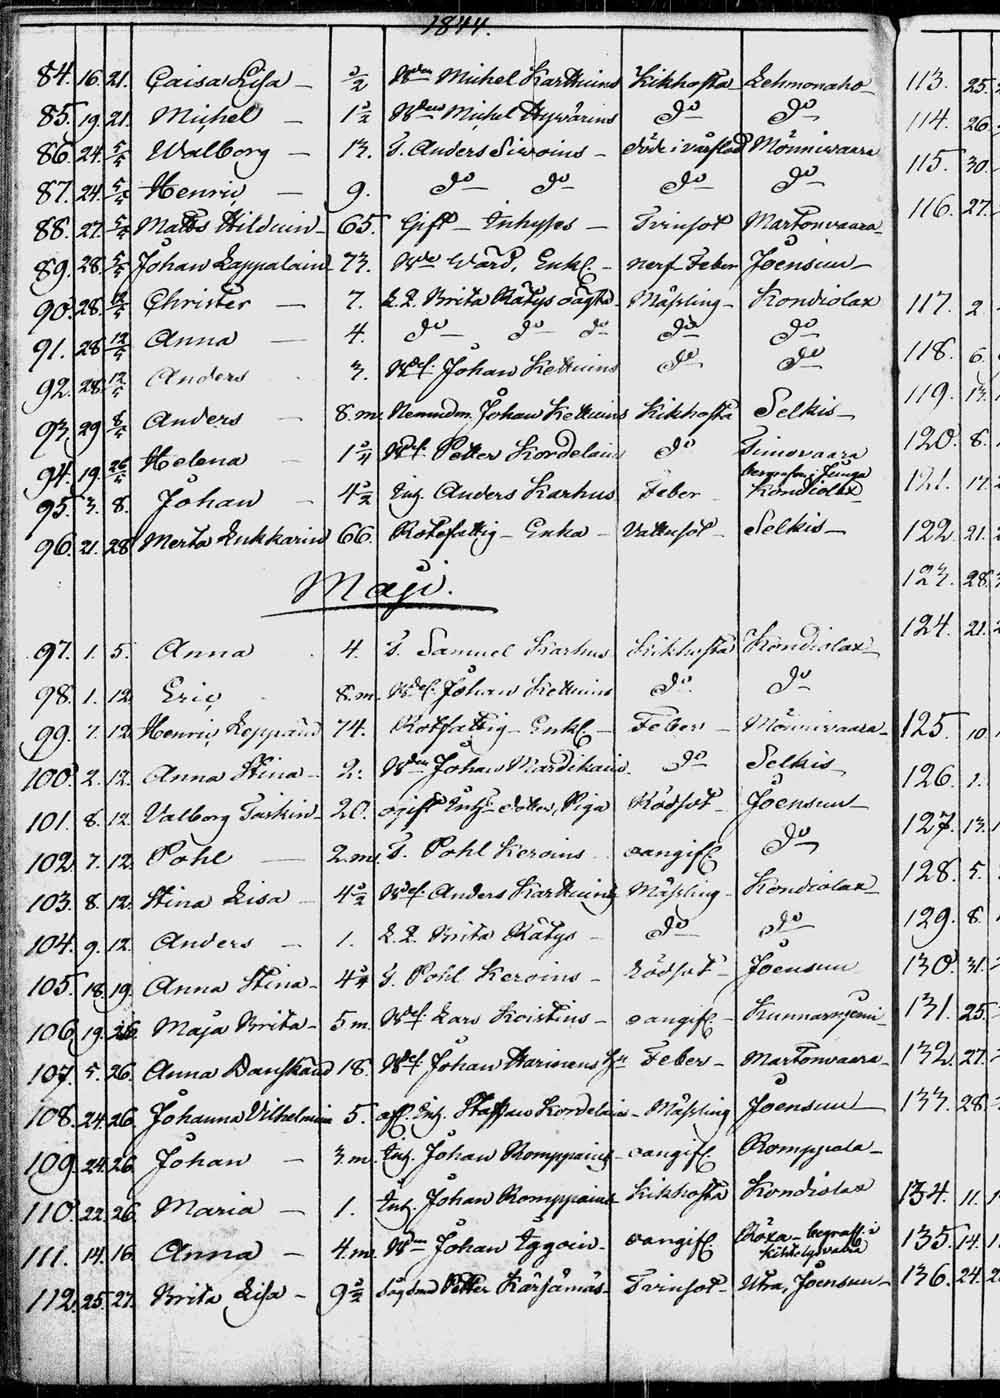 1844.
84. 16. 21. Caisa Lisa - 3/2 Michel Karttuins Kikhosta Lehmonaho
85. 19. 21. Michel - 1 3/2 Michel Hywärins do do
86. 24. 5/5 Walborg - 13. T. Anders Siwoins - Möniwaara
87. 24. 5/5 Henric - 9. do do do do
88. 27. 5/5 Matts Hilduin - 65. Gift - Inhyses - Tvinsot Martonvaara
89. 28. 5/5 Johan Lappalain 73. Wärd, Enkl. - nerf Feber Joensuu
90. 28. 12/5 Christer - 7. Brita Rätys Mässling - Kondiolax
91. 28 12/5 Anna - 4. do do do do do
92. 28. 12/5 Anders 3. Johan Kettuins do do
93. 29 8/5 Anders - 8 m. Johan Kettuins Kikhosta Selkis
94. 19. 26/5 Helena - Petter Kordelain do Timovaara
95. 3. 8. Johan - 4 3/2 Inh. Anders Karhus Feber - Kondiolax
96. 21. 28 Merta Lukkarin 66. Rotefattig - Enka - Vattusot - Selkis
Maji.
97. 1. 5. Anna 4. T. Samuel Karhus Kikhosta Kondiolax
98. 1. 12. Eric 8 m. Johan Kettuins do do
99. 7. 12 Henric Leppäin 74. Rotfattig - Enkl. - Feber - Möniwaara
100. 2. 12. Anna Stina - 2. Johan Mardikain do Selkis
101. 8. 12. Valborg Taskin - 20. ogift dotter, Piga Rödsot - Joensuu
102. 7. 12. Pohl - 2 m. T. Pohl Keroins oangifl. do
103. 8. 12. Stina Lisa - 4 3/2 Anders Karttuins Mässling - Kondiolax
104. 9. 12. Anders - 1. Brita Rätys - do do
105. 18. 19. Anna Stina - T. Pohl Keroins - Rödsot - Joensuu
106. 19. 26. Maja Brita - 5 m. Lars Koistins - oangifl. - Kunnarniemi
107. 5. 26. Anna 18. Johan Feber - Martonvaara
108. 24. 26. Johanna Vilhelmina 5. Inh. Staffan Kordelains - Mässling Joensuu
109. 24. 26. Johan - 3 m. Inh. Johan Romppains - oangifl. Romppala
110. 22. 26. Maria - 1. Inh. Johan Romppains - Kikhosta Kondiolax
111. 14. 16. Anna - 4 m. Johan Iggoin - oangifl.
112. 25. 27. Brita Lisa - 9 3/2 Petter Kärsämäs - Tvinsot - Utra, Joensuu
113. 25.
114. 26
115. 30.
116. 27.
117. 2.
118. 6.
119. 13.
120. 8.
121. 17.
122. 21.
123. 28.
124. 21.
125. 10.
126. 1.
127. 13.
128. 5.
129. 8.
130. 31.
131. 25.
132. 27.
133. 28.
134. 11.
135. 14.
136. 24.